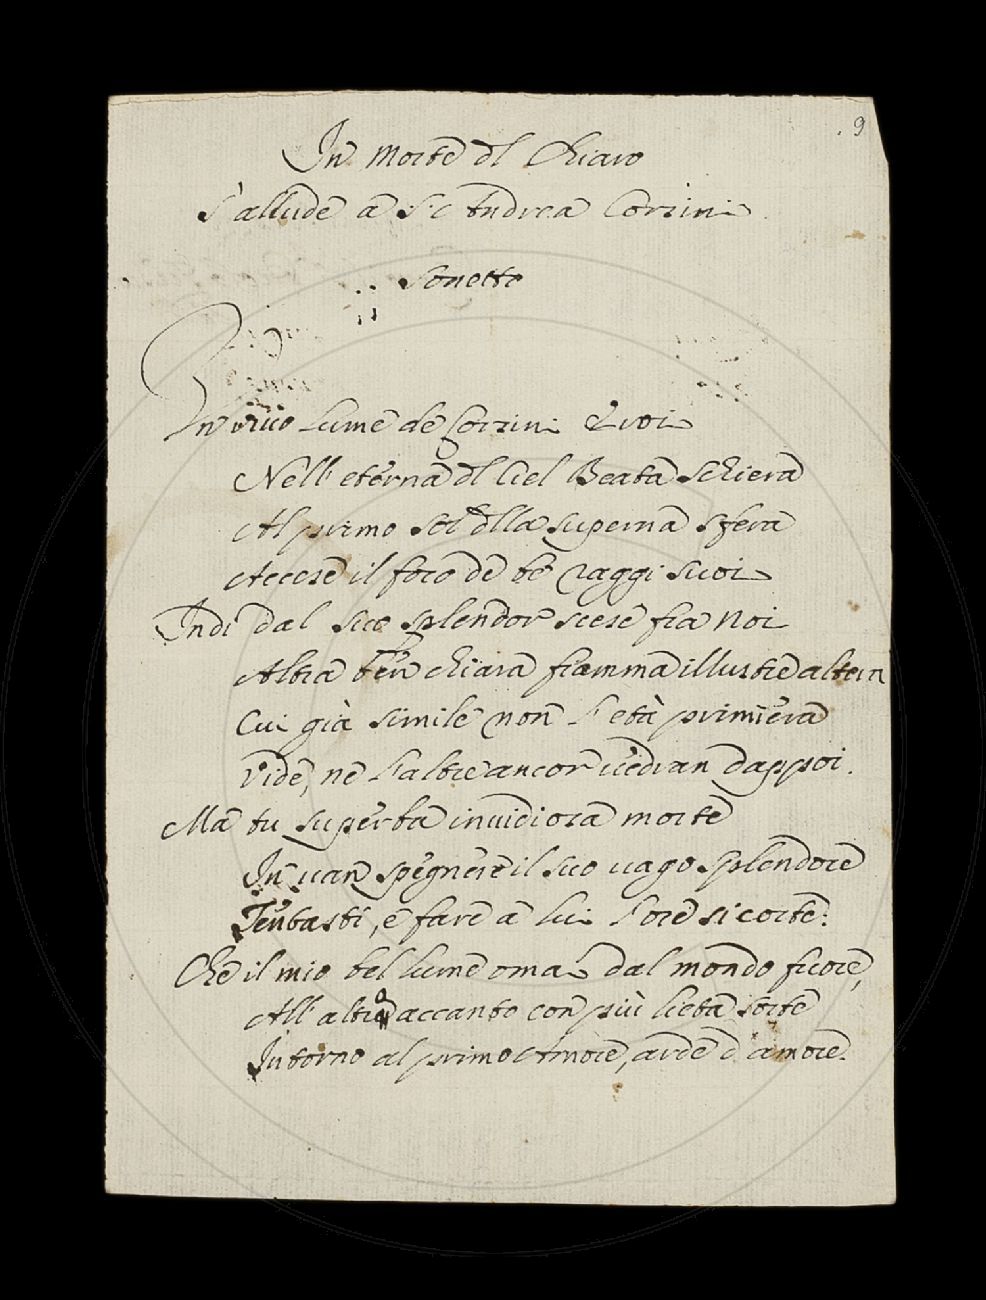 9
In Morte dl Chiaro
S'allude a S.t Andrea Corsini
Sonetto
Un vivo lume de Corsini Eroi
Nell' eterna dl Ciel Beata schiera
Al primo sol dlla superna sfera
Accese il foco de bè raggi suoi
Indi dal suo splendor scese fra noi
Altra ben chiara fiamma illustre altera
Cui già simile non l'età primiera
Vide, nè l'altre ancor vedran dappoi.
Ma tu superba invidiosa morte
In van spegnere il suo vago splendore
Tentasti, e fare a lui l'ore sì corte:
Chè il mio bel lume omai dal mondo fuore,
All' altro accanto con più lieta sorte
Intorno al primo Amore, arde d'amore.